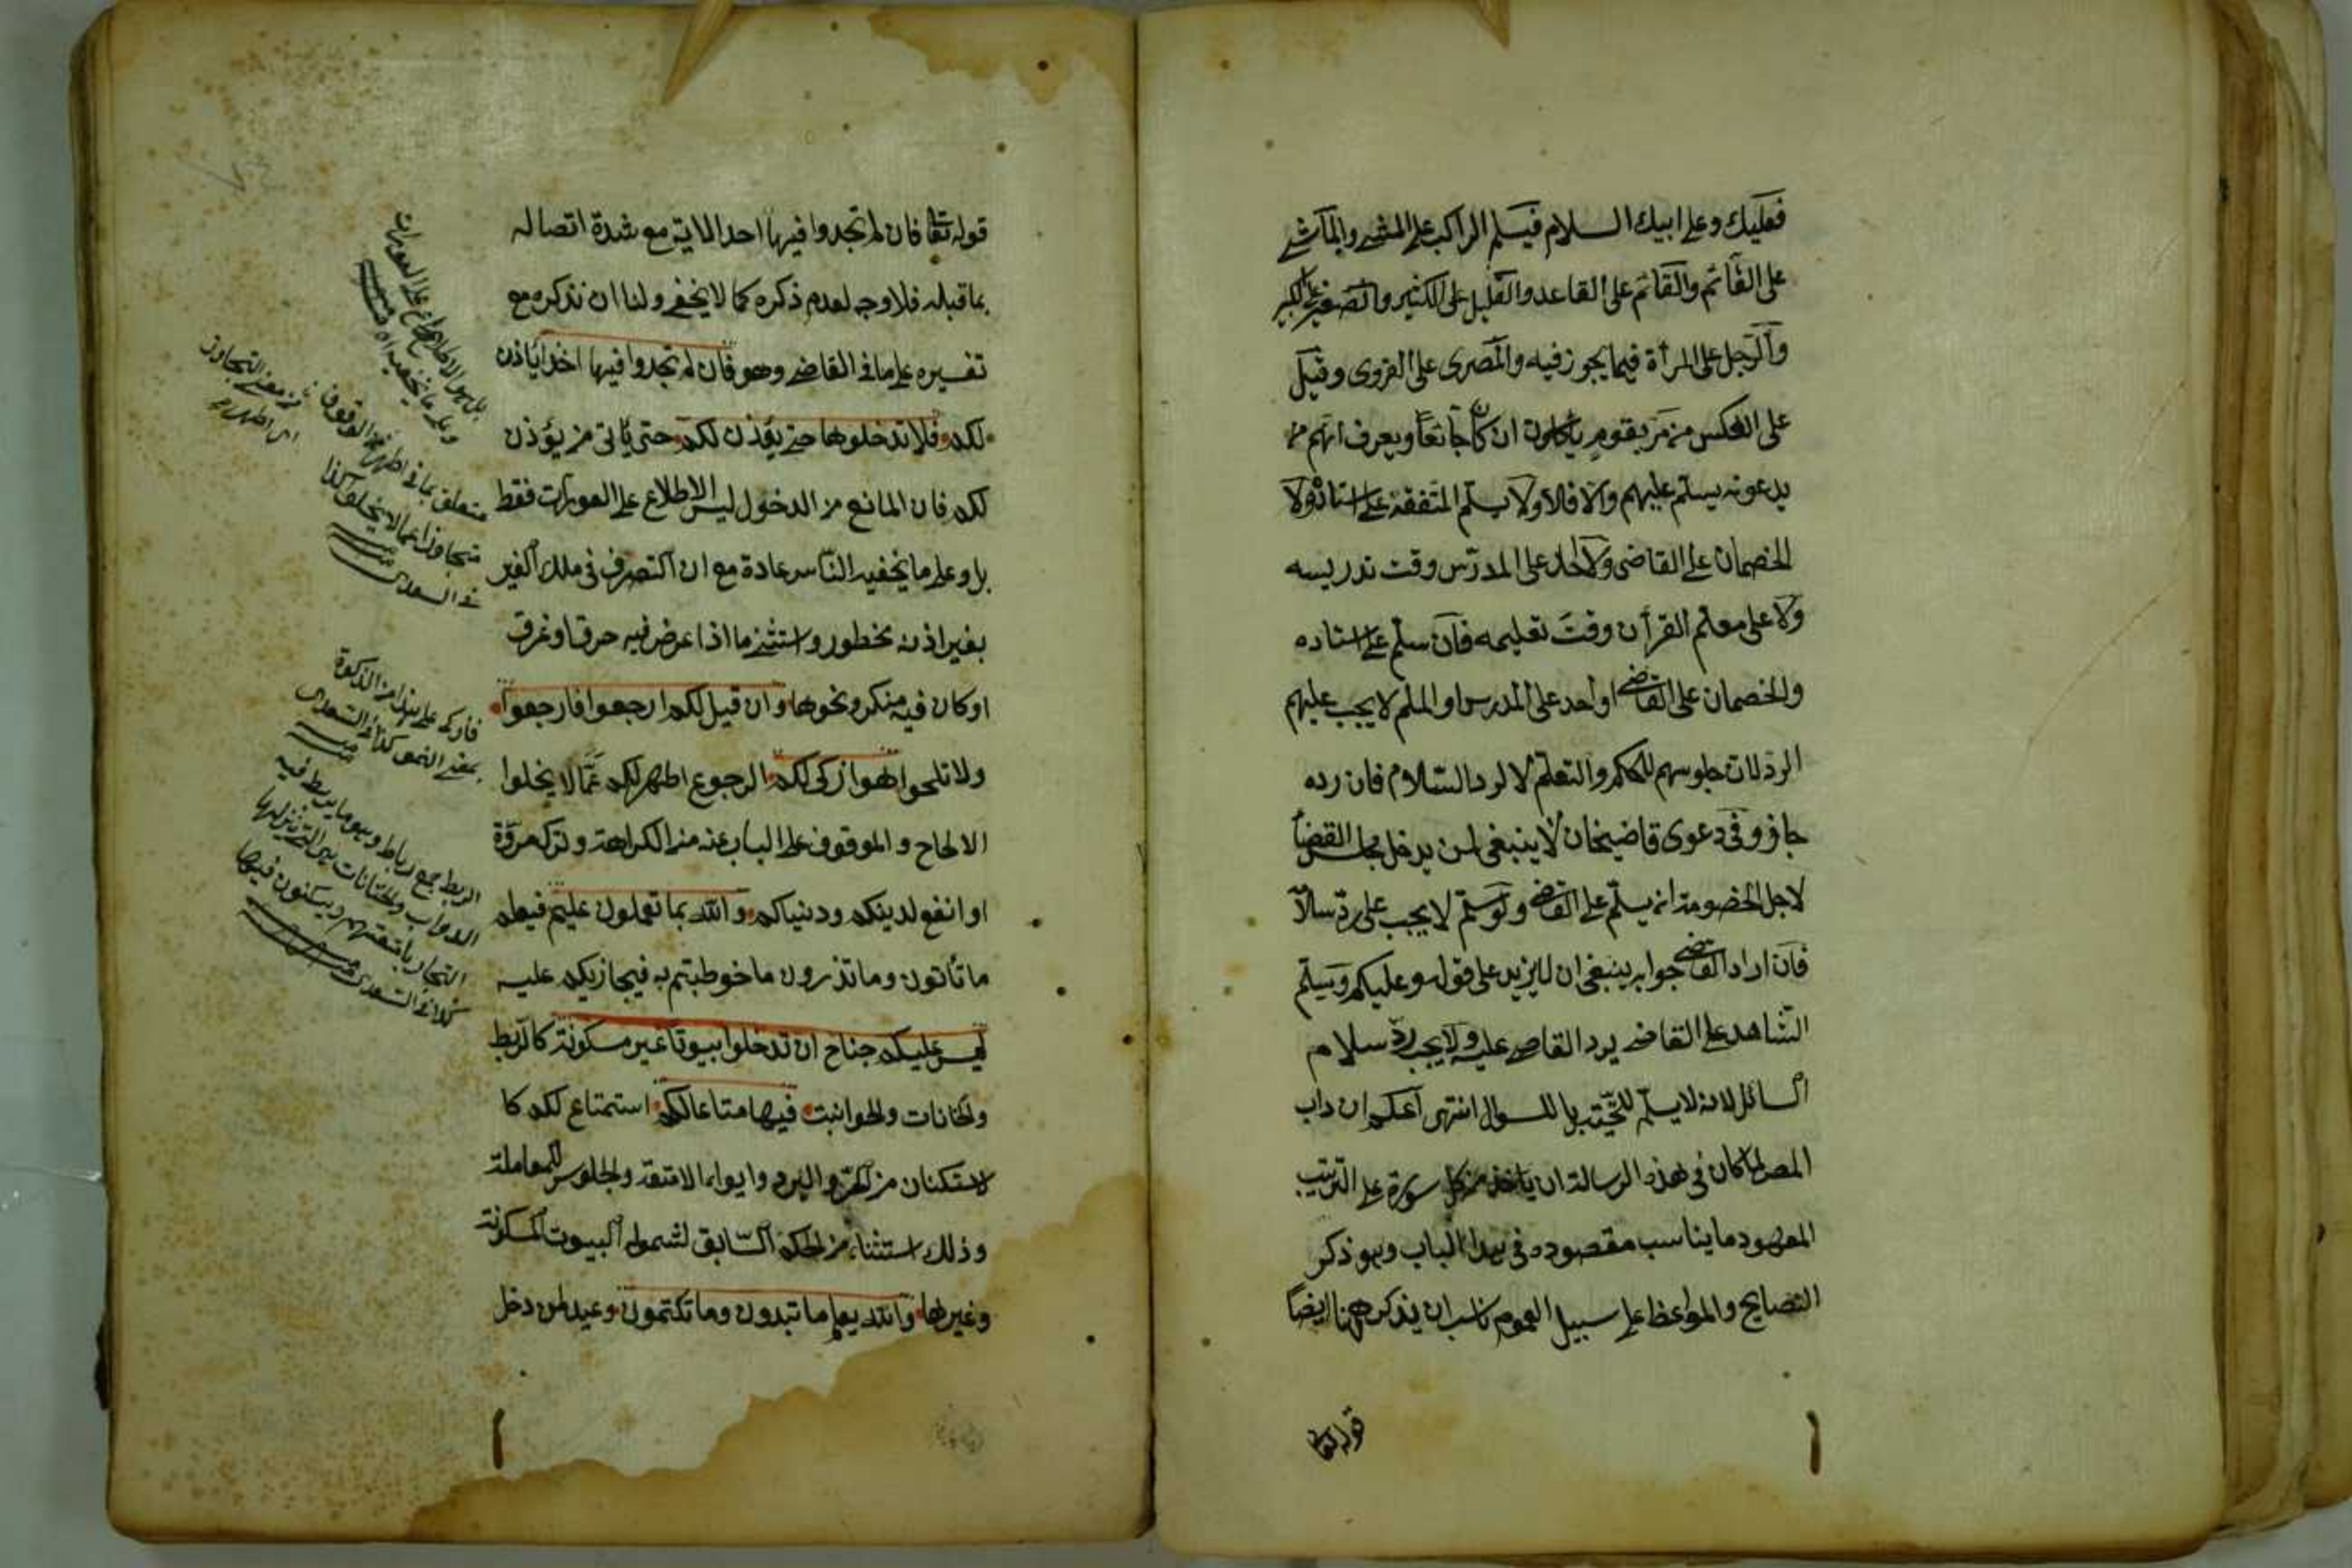 فعليك وعلى ابيك السلام فيسلم الراكب على المشي والماشي
على القائم والقائم على القاعد والقليل على الكثير والصغير على الكبير
والرجل على المرأة فيما يجوز فيه والمصري على القروي وقيل
على العكس من مر بقوم يأكلون ان كان جائعا ويعرف انهم
يدعونه يسلم عليهم والا فلا ولا يسلم المتفقه على استاذه ولا
الخصمان على القاضي ولا احد على المدرس وقت تدريسه
ولا على معلم القرأن وقت تعليمه فان سلم على استاده
والخصمان على القاضي او احد على المدرس او المعلم لا يجب عليهم
الرد لان جلوسهم للحكم والتعلم لا لرد السلام فان رده
جاز وفي دعوى قاضيخان لا ينبغي لمن يدخل مجلس القضا
لاجل الخصومة انه يسلم على القاضي ولو سلم لا يجب على رد سلا
فان اراد القاضي جوابه ينبغي ان لا يزيد على قوله وعليكم وسلم
الشاهد على القاضي يرد القاضي عليه ولا يجب رد سلام
السائل لانه لا يسلم للتحية بل للسوال انتهى اعلم ان داب
المص لما كان في هذه الرسالة ان يأخذ من كل سورة على الترتيب
المعهود ما يناسب مقصوده في هذا الباب وهو ذكر
النصايح والمواعظ على سبيل العموم ناسب ان يذكر ههنا ايضا
قوله تعا
قوله تعا فان لم تجدوا فيها احد الاية مع شدة اتصاله
بما قبله فلا وجه لعدم ذكره كما لا يخفى ولنا ان نذكره مع
تفسيره على ما في القاضي وهو فان لم تجدوا فيها احدا يأذن
لكم فلا تدخلوها حتى يؤذن لكم حتى يأتي من يؤذن
لكم فان المانع من الدخول ليس الاطلاع على العورات فقط
بل وعلى ما يخفيه الناس عادة مع ان التصرف في ملك الغير
بغير اذنه محظور واستثنى ما اذا عرض فيه حرق او غرق
او كان فيه منكر ونحوها وان قيل لكم ارجعوا فارجعوا
ولا تلحوا هو ازكى لكم الرجوع اطهر لكم عما لا يخلوا
الالحاح والوقوف على الباب عنه من الكراهة وترك مروة
او انفع لدينكم ودنياكم والله بما تعملون عليم فيعلم
ما تأتون وما تذرون ما خوطبتم به فيجازيكم عليه
ليس عليكم جناح ان تدخلوا بيوتا غير مسكونة كالربط
والخانات والحوانيت فيها متاع لكم استمتاع لكم كا
لاستكنان من الحر والبرد وايواء الامتعة والجلوس للمعاملة
وذلك استثناء من الحكم السابق لشموله البيوت المسكونة
وغيرها والله يعلم ما تبدون وما تكتمون وعيد لمن دخل
بل هو الاطلاع على العورات
وعلى ما يخفيه
متعلق بما في اطهر
من معنى التجاوز
اي اطهر
متجاوزا عما لا يخلو كذا
في السعدى
فازكى على هذا من الزكوة
بمعنى النمو كذا في السعدى
الربط جمع رباط وهو ما يربط فيه
الدواب والخانات هي التي ينزلها
التجار بامتعتهم ويسكنون فيها
كذا في السعدى